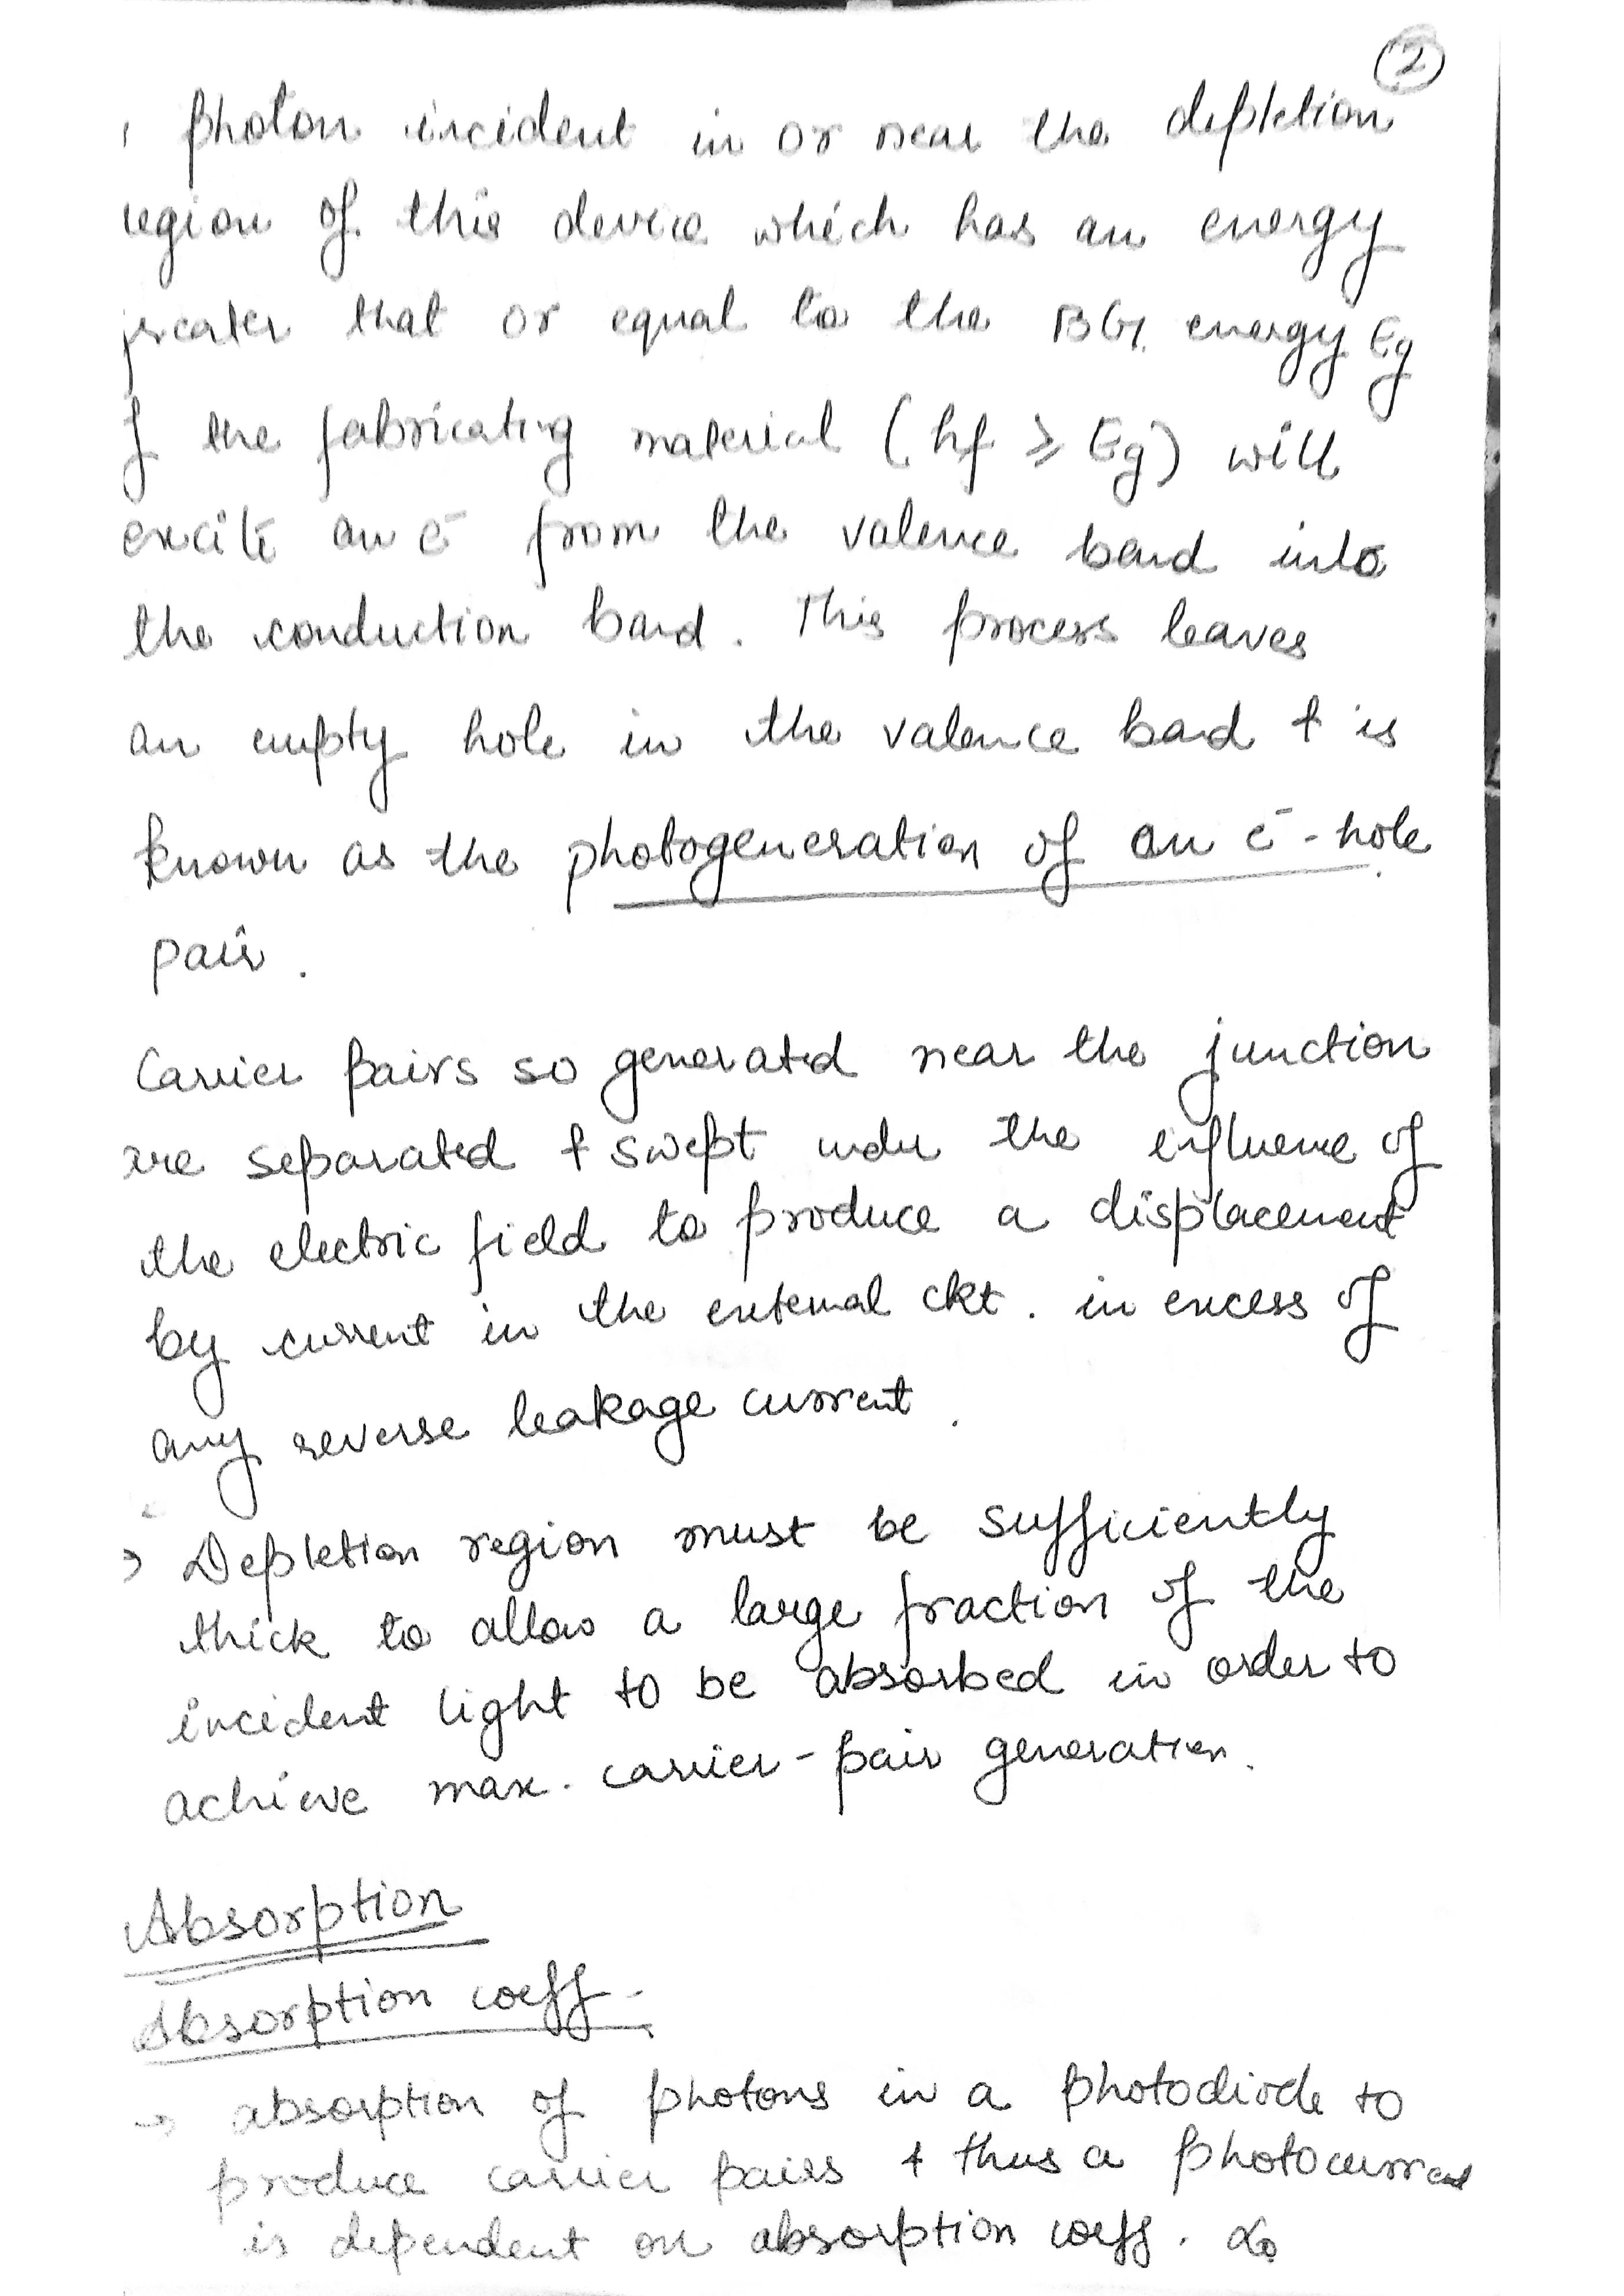 2
photon incident in or near the depletion
region of this device which has an energy
greater that or equal to the BG. energy Eg
of the fabricating material (hf ⩾ Eg) will
excite an e⁻ from the valence band into
the conduction band. This process leaves
an empty hole in the valence band & is
known as the photogeneration of an e⁻-hole
pair.
Carrier pairs so generated near the junction
are separated & swept under the influence of
the electric field to produce a displacement
by current in the external ckt. in excess of
any reverse leakage current.
→ Depletion region must be sufficiently
thick to allow a large fraction of the
incident light to be absorbed in order to
achieve max. carrier-pair generation.
Absorption
Absorption coeff.
→ absorption of photons in a photodiode to
produce carrier pairs & thus a photocurrent
is dependent on absorption coeff. α₀